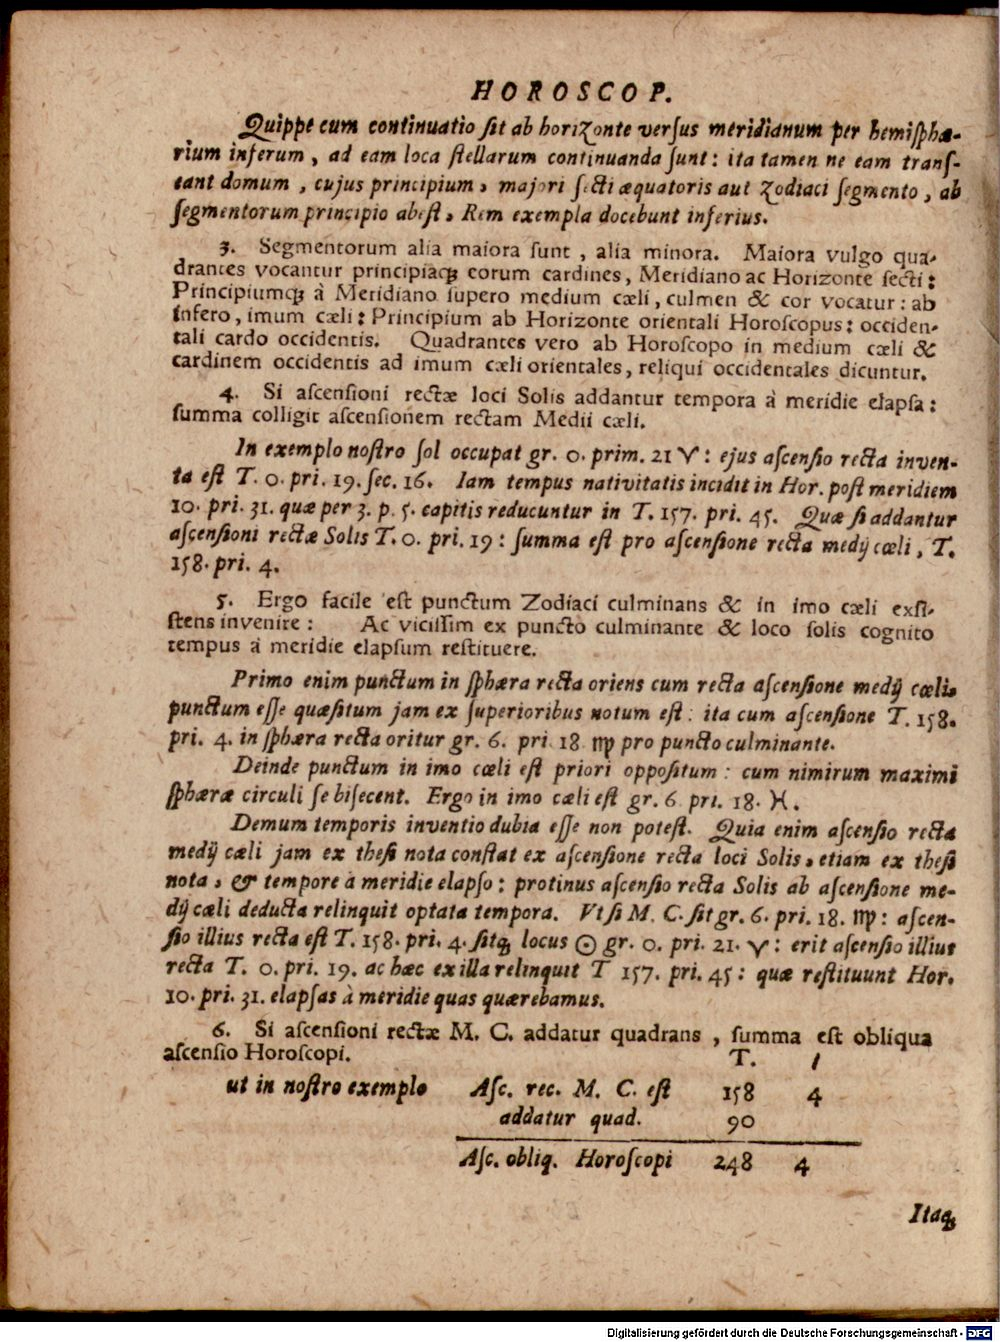 HOROSCOP.
Quippe cum continuatio ſit ab horizonte verſus meridianum per hemiſphæ-
rium inferum, ad eam loca ſtellarum continuanda ſunt: ita tamen ne eam tranſ-
eant domum, cujus principium, majori ſecti æquatoris aut Zodiaci ſegmento, ab
ſegmentorum principio abeſt, Rem exempla docebunt inferius.
3. Segmentorum alia maiora ſunt, alia minora. Maiora vulgo qua-
drantes vocantur principiaq́; eorum cardines, Meridiano ac Horizonte ſecti:
Principiumq́; à Meridiano ſupero medium cæli, culmen & cor vocatur: ab
infero, imum cæli: Principium ab Horizonte orientali Horoſcopus: occiden-
tali cardo occidentis. Quadrantes vero ab Horoſcopo in medium cæli &
cardinem occidentis ad imum cæli orientales, reliqui occidentales dicuntur.
4. Si aſcenſioni rectæ loci Solis addantur tempora à meridie elapſa:
ſumma colligit aſcenſionem rectam Medii cæli.
In exemplo noſtro ſol occupat gr. 0. prim. 21 ♈: ejus aſcenſio recta inven-
ta eſt T. 0. pri. 19. ſec. 16. Iam tempus nativitatis incidit in Hor. poſt meridiem
10. pri. 31. quæ per 3. p. 5. capitis reducuntur in T. 157. pri. 45. Quæ ſi addantur
aſcenſioni rectæ Solis T. 0. pri. 19: ſumma eſt pro aſcenſione recta medij cæli, T.
158. pri. 4.
5. Ergo facile eſt punctum Zodiaci culminans & in imo cæli exſi-
ſtens invenire: Ac viciſſim ex puncto culminante & loco ſolis cognito
tempus à meridie elapſum reſtituere.
Primo enim punctum in ſphæra recta oriens cum recta aſcenſione medij cæli,
punctum eſſe quæſitum jam ex ſuperioribus notum eſt: ita cum aſcenſione T. 158.
pri. 4. in ſphæra recta oritur gr. 6. pri 18 ♍ pro puncto culminante.
Deinde punctum in imo cæli eſt priori oppoſitum: cum nimirum maximi
ſphæræ circuli ſe biſecent. Ergo in imo cæli eſt gr. 6 pri. 18. ♓.
Demum temporis inventio dubia eſſe non poteſt. Quia enim aſcenſio recta
medij cæli jam ex theſi nota conſtat ex aſcenſione recta loci Solis, etiam ex theſi
nota, & tempore à meridie elapſo: protinus aſcenſio recta Solis ab aſcenſione me-
dij cæli deducta relinquit optata tempora. Vt ſi M. C. ſit gr. 6. pri. 18. ♍: aſcen-
ſio illius recta eſt T. 158. pri. 4. ſitq́; locus ☉ gr. 0. pri. 21. ♈: erit aſcenſio illius
recta T. 0. pri. 19. ac hæc ex illa relinquit T 157. pri. 45: quæ reſtituunt Hor.
10. pri. 31. elapſas à meridie quas quærebamus.
6. Si aſcenſioni rectæ M. C. addatur quadrans, ſumma eſt obliqua
aſcenſio Horoſcopi. T. /
ut in noſtro exemplo Aſc. rec. M. C. eſt 158 4
addatur quad. 90
Aſc. obliq. Horoſcopi 248 4
Itaq́;
Digitalisierung gefördert durch die Deutsche Forschungsgemeinschaft - DFG